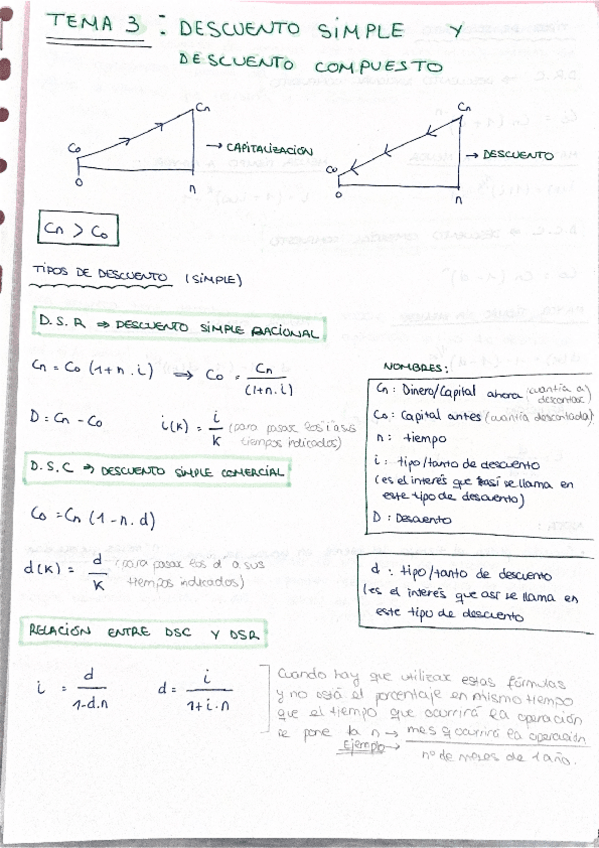 TEMA 3 : DESCUENTO SIMPLE Y
DESCUENTO COMPUESTO
Cn
Co
0
n
→ CAPITALIZACIÓN
Cn
Co
0
n
→ DESCUENTO
Cn > Co
TIPOS DE DESCUENTO (SIMPLE)
D.S.R ⇒ DESCUENTO SIMPLE RACIONAL
Cn = Co (1+n.i) → Co = Cn / (1+n.i)
D = Cn - Co i(k) = i / K (para pasar los i a sus
tiempos indicados)
D.S.C ⇒ DESCUENTO SIMPLE COMERCIAL
Co = Cn (1-n.d)
d(k) = d / K (para pasar los d a sus
tiempos indicados)
NOMBRES:
Cn: Dinero/Capital ahora (cuantía a
descontar)
Co: Capital antes (cuantía descontada)
n: tiempo
i: tipo/tanto de descuento
(es el interés que así se llama en
este tipo de descuento)
D: Descuento
d: tipo/tanto de descuento
(es el interés que así se llama en
este tipo de descuento
RELACIÓN ENTRE DSC Y DSR
i = d / 1-d.n d = i / 1+i.n
Cuando hay que utilizar estas fórmulas
y no está el porcentaje en mismo tiempo
que el tiempo que ocurrirá la operación
se pone la n → mes q ocurrirá la operación
Ejemplo → nº de meses de 1 año.